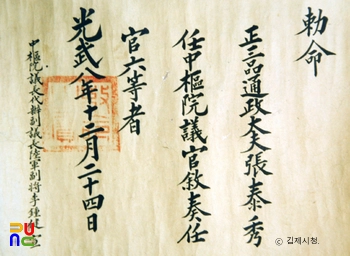 勅命
正三品通政大夫張泰秀
任中樞院議官敘奏任
官六等者
光武八年十二月二十四日
中樞院議長代辦副議長陸軍副將李鍾健宣
© 김제시청.